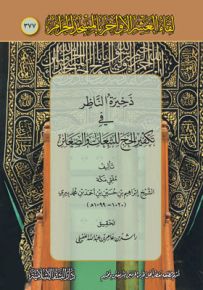 لقاء العشر الأواخر بالمسجد الحرام
٣٧٧
ذخيرة الناظر
في
تكفير الحج التبعات والصغائر
تأليف
مفتي مكة
الشيخ إبراهيم بن حسين بن أحمد بن محمد بيري
(١٠٢٠-١٠٩٩هـ)
تحقيق
راشد بن عامر بن عبد الله الغفيلي
دار البشائر الإسلامية